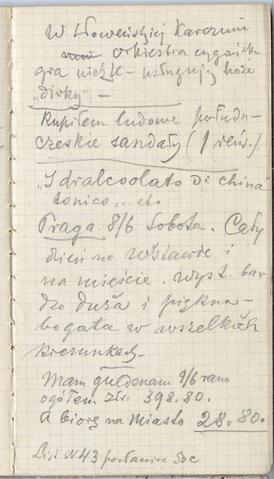 W Słoweńskiej Karczmi
orkiestra cygańska
gra nieźle – usługują hoże
"dirky" –
Kupiłem ludowe połudn-
czeskie sandały (1 reńs.)
"Idralcoolato di china
tonico... etc.
Praga 8/6 Sobota. Cały
dzień na wystawie i
na mieście. Wyst. bar
dzo duża i piękna –
bogata w wszelkich
kierunkach –
Mam guldenam 9/6 rano
ogółem złr. 398.80.
a biorę na miasto 28.80.
N 43